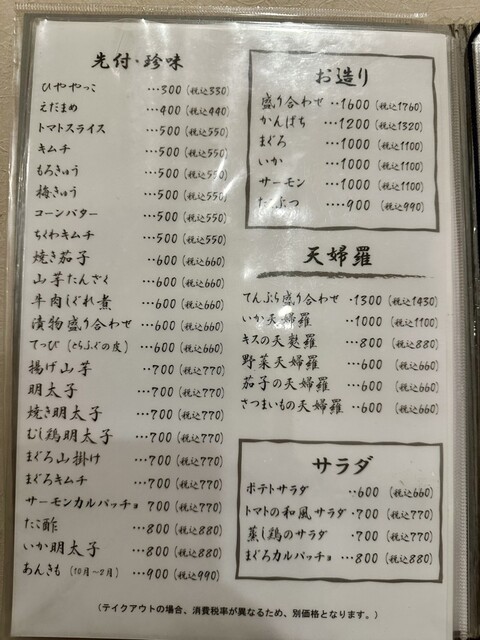 先付・珍味
ひややっこ …300(税込330)
えだまめ …400(税込440)
トマトスライス …500(税込550)
キムチ …500(税込550)
もろきゅう …500(税込550)
梅きゅう …500(税込550)
コーンバター …500(税込550)
ちくわキムチ …500(税込550)
焼き茄子 …600(税込660)
山芋たんざく …600(税込660)
牛肉しぐれ煮 …600(税込660)
漬物盛り合わせ …600(税込660)
てっぴ(とらふぐの皮) …600(税込660)
揚げ山芋 …700(税込770)
明太子 …700(税込770)
焼き明太子 …700(税込770)
むし鶏明太子 …700(税込770)
まぐろ山掛け …700(税込770)
まぐろキムチ …700(税込770)
サーモンカルパッチョ …700(税込770)
たこ酢 …800(税込880)
いか明太子 …800(税込880)
あんきも(10月〜2月) …900(税込990)
お造り
盛り合わせ …1600(税込1760)
かんぱち …1200(税込1320)
まぐろ …1000(税込1100)
いか …1000(税込1100)
サーモン …1000(税込1100)
たこぶつ …900(税込990)
天婦羅
てんぷら盛り合わせ ・1300(税込1430)
いか天婦羅 …1000(税込1100)
キスの天麩羅 …800(税込880)
野菜天婦羅 …600(税込660)
茄子の天婦羅 …600(税込660)
さつまいもの天婦羅 …600(税込660)
サラダ
ポテトサラダ …600(税込660)
トマトの和風サラダ・700(税込770)
蒸し鶏のサラダ ・700(税込770)
まぐろカルパッチョ …800(税込880)
(テイクアウトの場合、消費税率が異なるため、別価格となります。)